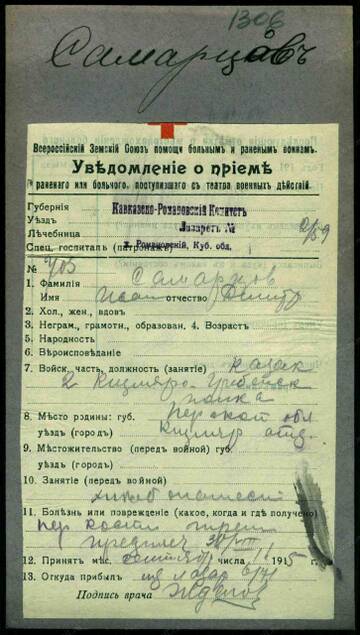 1306
Самарцовъ
Всероссійскій Земскій Союзъ помощи больнымъ и раненымъ воинамъ.
Увѣдомленіе о пріемѣ
раненаго или больного, поступившаго съ театра военныхъ дѣйствій.
Губернія Кавказско-Романовскій Комитетъ
Уѣздъ
Лѣчебница Лазаретъ №
Спец. госпиталь (патронажъ) х. Романовскій, Куб. обл.
№ 403
1. Фамилія Самарцов
Имя Иван отчество Дмитр
2. Хол., жен., вдов.
3. Неграм., грамотн., образован. 4. Возрастъ
5. Народность
6. Вѣроисповѣданіе
7. Войск. часть, должность (занятіе) казак
2 Кизляро-Гребенск
полка
8. Мѣсто родины: губ. Терской обл
уѣздъ (городъ) Кизляр отд.
9. Мѣстожительство (передъ войной) губ.
уѣздъ (городъ)
10. Занятіе (передъ войной)
хлебопашест
11. Болѣзнь или поврежденіе (какое, когда и гдѣ получено)
пер кости
предплеч
12. Принятъ мѣс. числа 1915 г.
13. Откуда прибылъ
Подпись врача